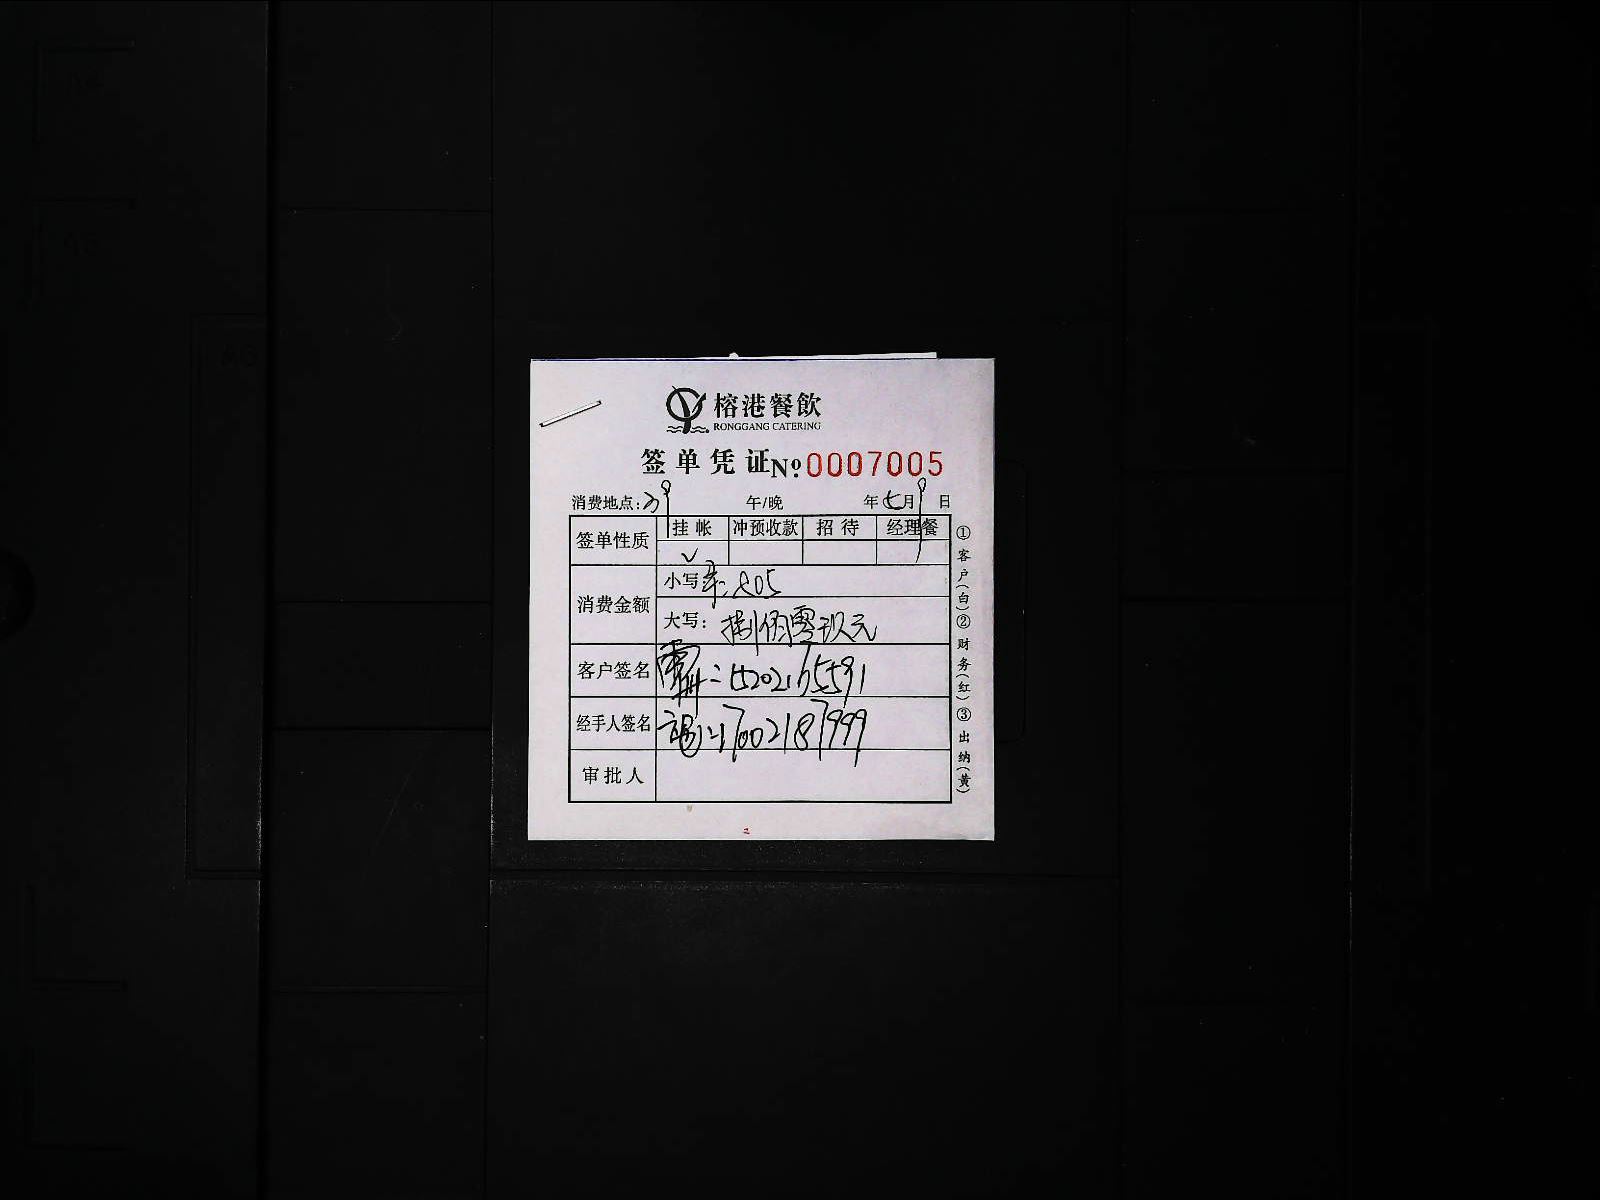 榕港餐飲
RONGGANG CATERING
签单凭证 №:0007005
消费地点: 午/晚 年 七月9日
签单性质 挂帐 冲预收款 招待 经理餐
✓
消费金额 小写: 805
大写: 捌佰零玖元
客户签名
经手人签名 :17002187999
审批人
①客户(白)②财务(红)③出纳(黄)